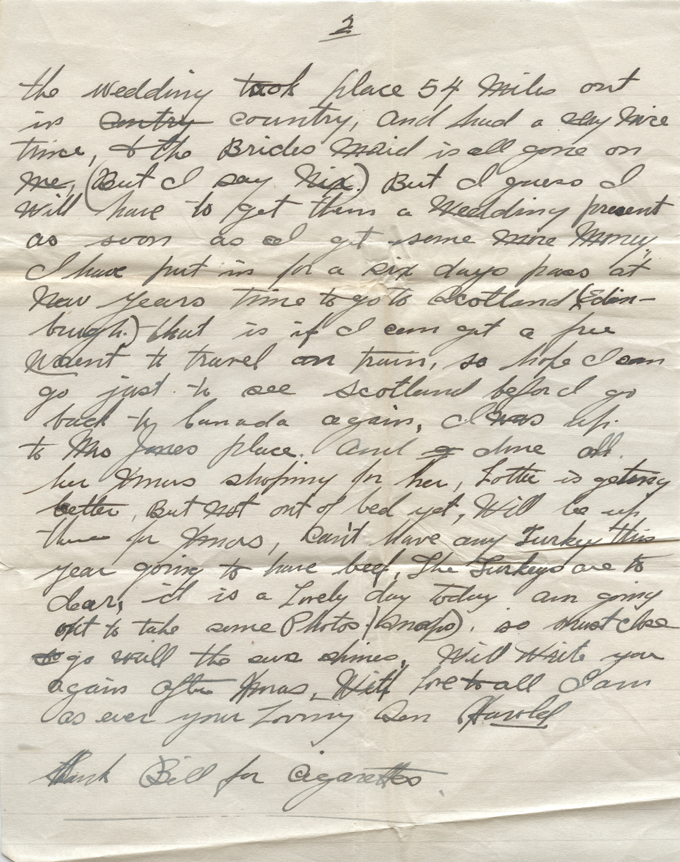 2
the wedding took place 54 Miles out
in contry country, and had a nice
time, & the Brides Maid is all gone on
me, (But I say Nix.) But I guess I
will have to get them a Wedding present
as soon as I get some more Money,
I have put in for a six days pass at
New Years time to go to Scotland (Edin-
burgh.) that is if I can get a free
to travel on train, so hope I can
go just to see Scotland before I go
back to Canada again, I was up
to Mrs Jones place. And done all
her Xmas shoping for her, Lottie is geting
better, But Not out of bed yet, Will be up
there for Xmas, Can't have any Turkey this
year going to have beef, The Turkeys are to
dear, it is a Lovely day today am going
out to take some Photos (snaps). so must close
& go will the sun shines, Will Write you
again after Xmas, With love to all I am
as ever your Loving Son Harold
Thank Bill for Cigarettes.